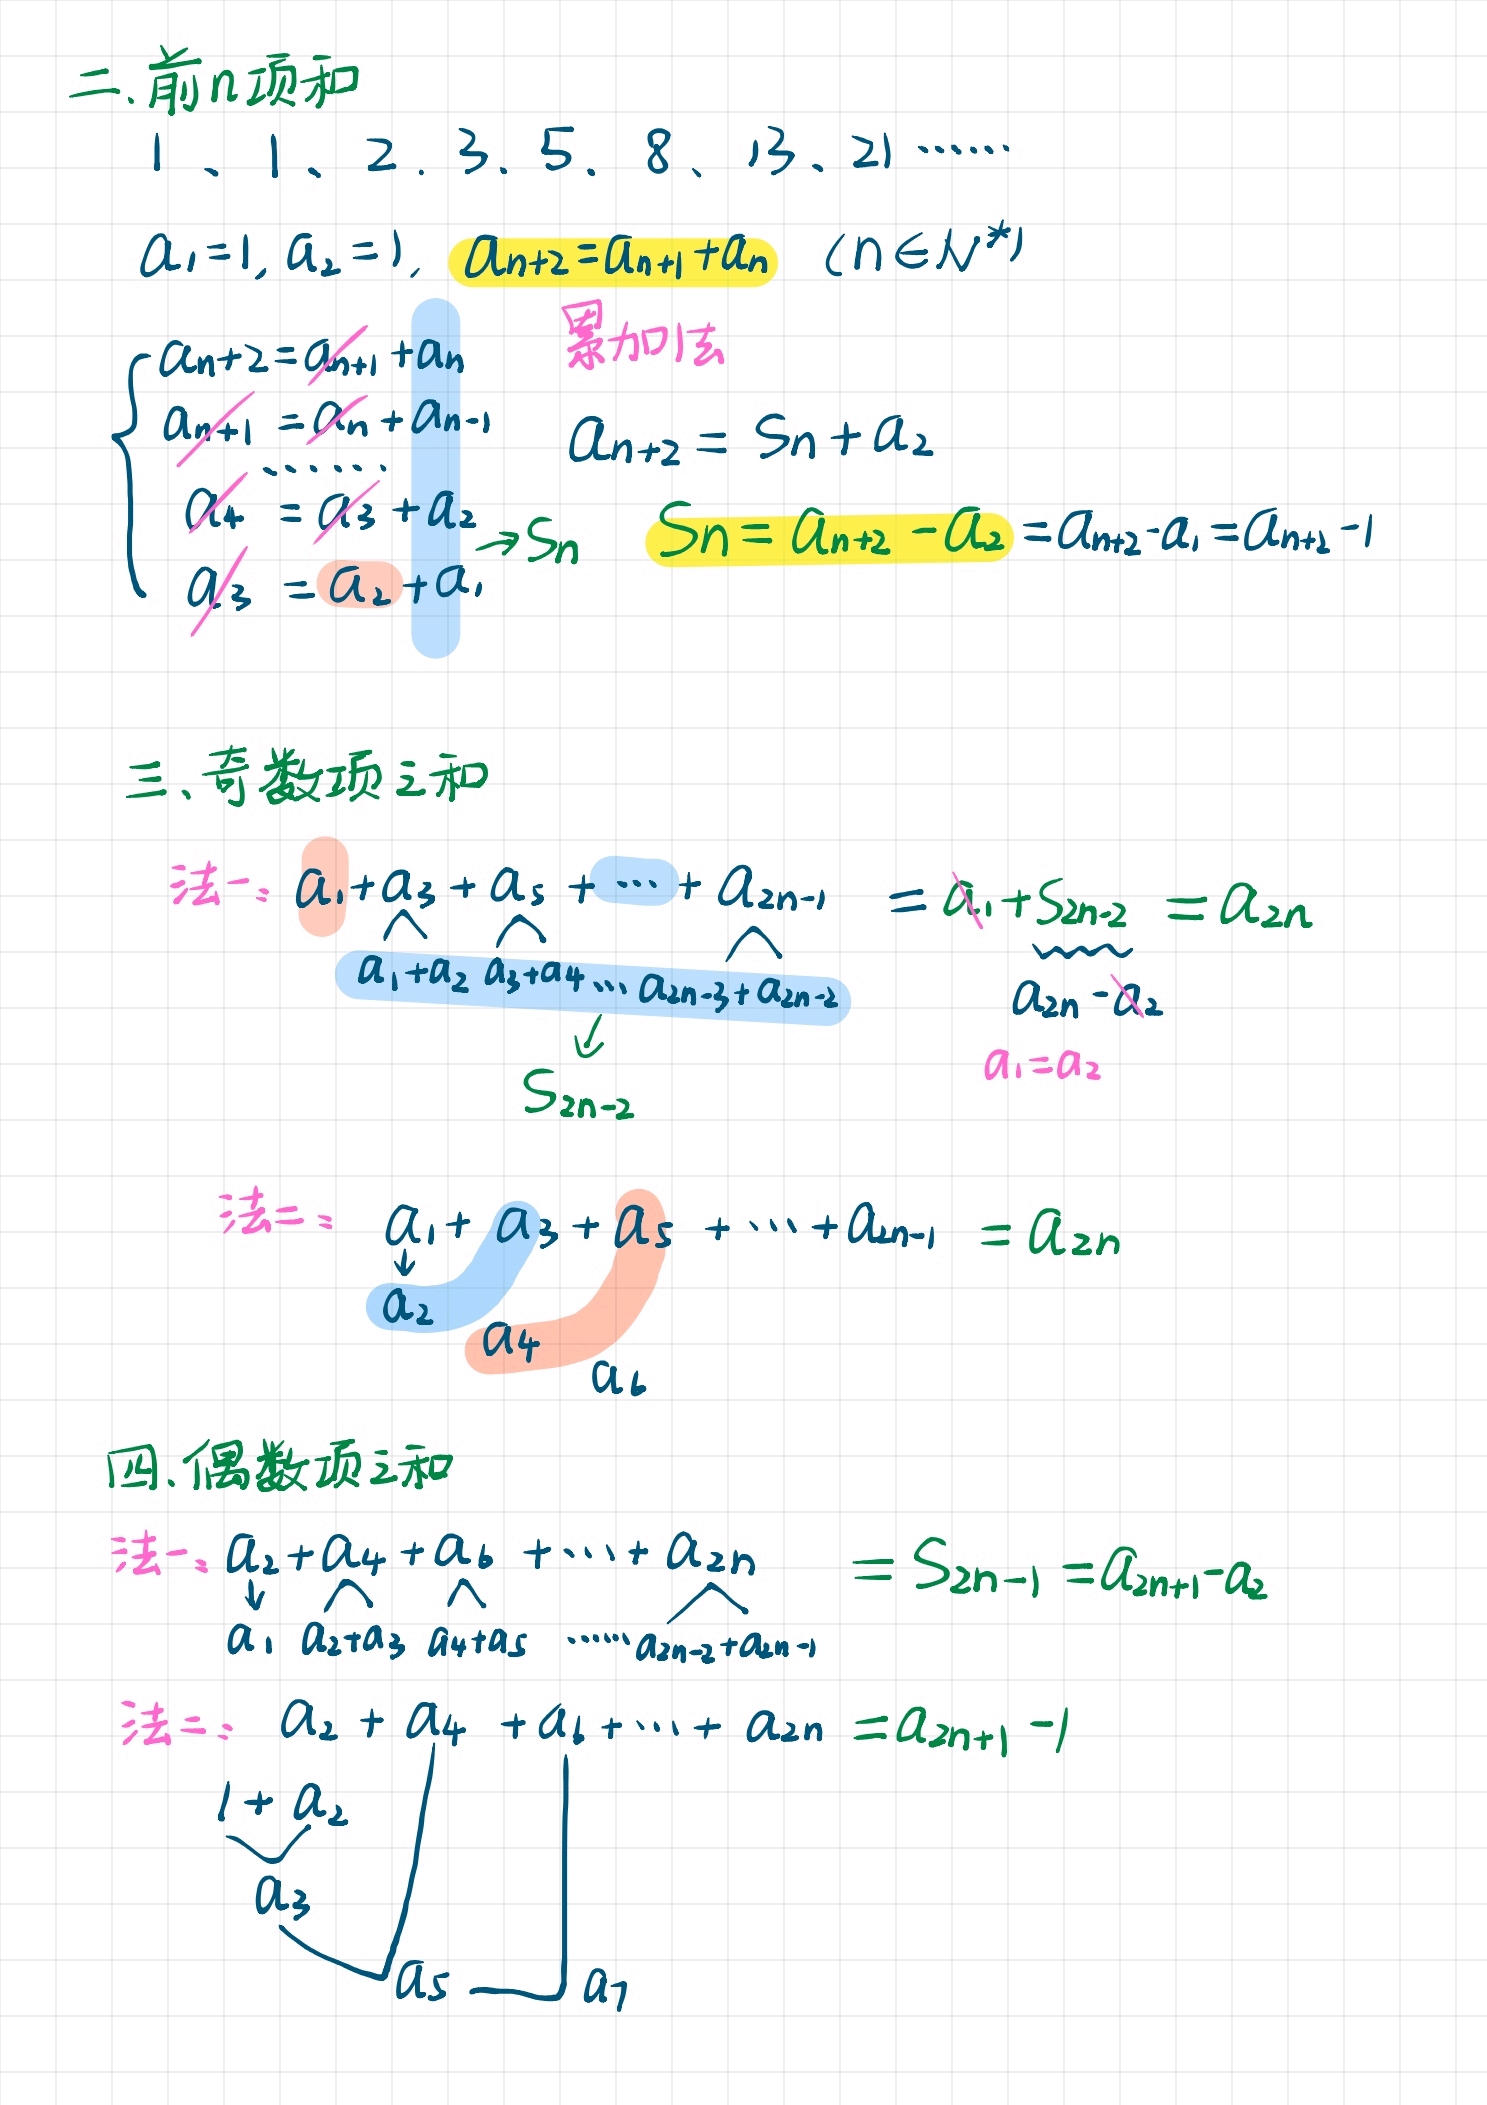 二、前n项和
1、1、2、3、5、8、13、21……
a₁=1, a₂=1, aₙ₊₂=aₙ₊₁+aₙ (n∈N*)
累加法
aₙ₊₂=aₙ₊₁+aₙ
aₙ₊₁=aₙ+aₙ₋₁
……
a₄=a₃+a₂
a₃=a₂+a₁
→Sₙ
aₙ₊₂=Sₙ+a₂
Sₙ=aₙ₊₂-a₂=aₙ₊₂-a₁=aₙ₊₂-1
三、奇数项之和
法一: a₁+a₃+a₅+…+a₂ₙ₋₁ =a₁+S₂ₙ₋₂=a₂ₙ
a₁+a₂ a₃+a₄…a₂ₙ₋₃+a₂ₙ₋₂
a₂ₙ-a₂
a₁=a₂
S₂ₙ₋₂
法二: a₁+a₃+a₅+…+a₂ₙ₋₁=a₂ₙ
a₂
a₄
a₆
四、偶数项之和
法一: a₂+a₄+a₆+…+a₂ₙ =S₂ₙ₋₁=a₂ₙ₊₁-a₂
a₁ a₂+a₃ a₄+a₅ ……a₂ₙ₋₂+a₂ₙ₋₁
法二: a₂+a₄+a₆+…+a₂ₙ=a₂ₙ₊₁-1
1+a₂
a₃
a₅ a₇